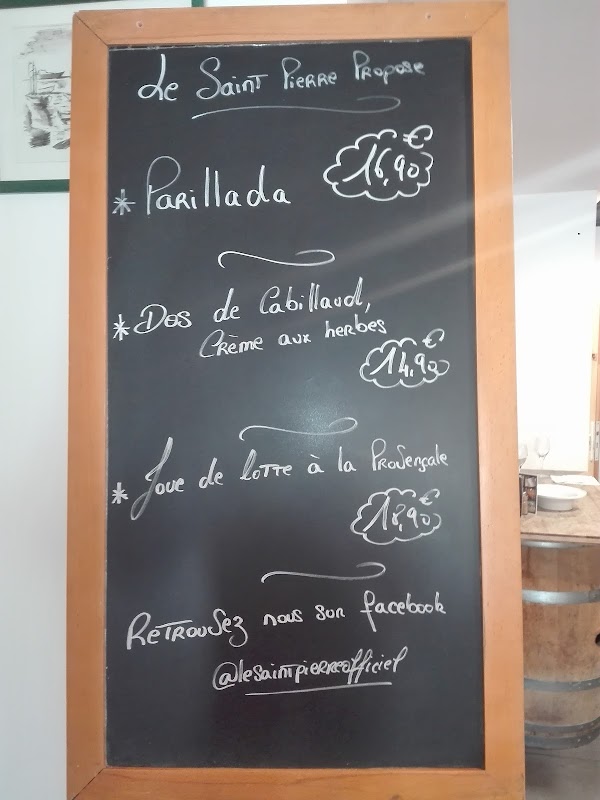 Le Saint Pierre Propose
16,90 €
* Parillada
* Dos de Cabillaud,
Crème aux herbes
14,90 €
* Joue de lotte à la Provençale
18,90 €
Retrouvez nous sur facebook
@lesaintpierreofficiel